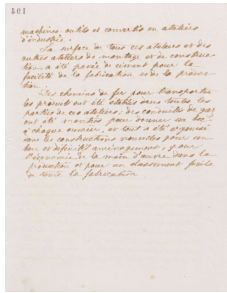 101
machines outils et convertis en ateliers
d'industrie.
La surface de tous ces ateliers et des
autres ateliers de montage et de construc-
tion a été pavée de ciment pour la
facilité de la fabrication et de la
Des chemins de fer pour transporter
les produits ont été établis dans toutes les
parties de ces ateliers; des conduites de gaz
ont été montées pour donner un bec
à chaque ouvrier, et tout a été organisé
dans les constructions nouvelles pour un
bon et définitif aménagement, pour
l'économie de la main d'œuvre dans la
production et pour un classement facile
de toute la fabrication